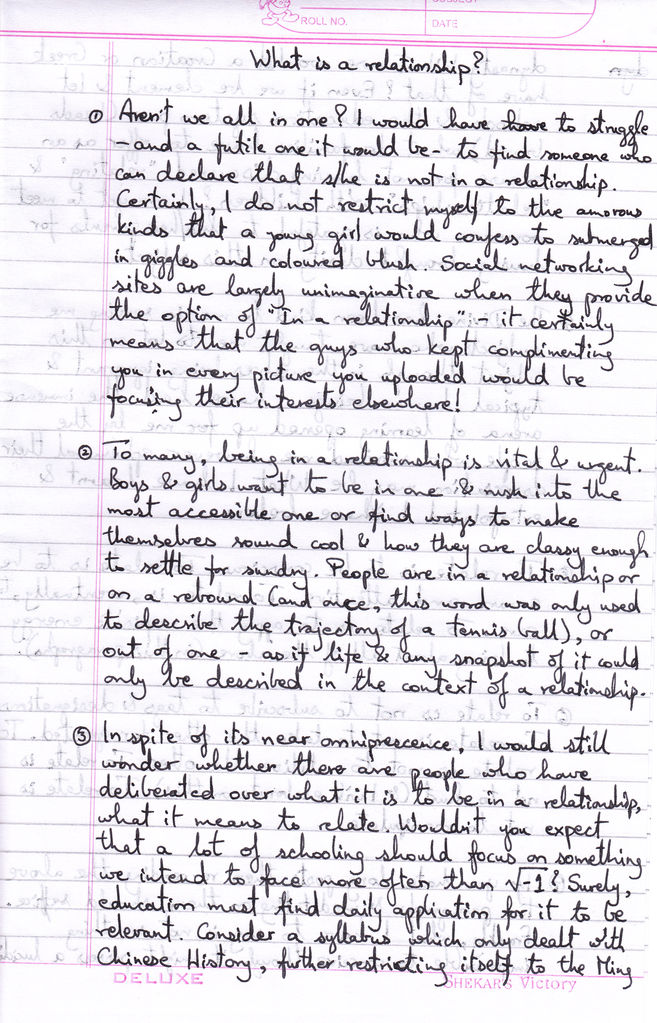 ROLL NO.
DATE
What is a relationship?
① Aren't we all in one? I would have to struggle
- and a futile one it would be - to find someone who
can declare that s/he is not in a relationship.
Certainly, I do not restrict myself to the amorous
kinds that a young girl would confess to submerged
in giggles and coloured blush. Social networking
sites are largely unimaginative when they provide
the option of "In a relationship" - it certainly
means that the guys who kept complimenting
you in every picture you uploaded would be
focusing their interests elsewhere!
② To many, being in a relationship is vital & urgent.
Boys & girls want to be in one & rush into the
most accessible one or find ways to make
themselves sound cool & how they are classy enough
to settle for sundry. People are in a relationship or
on a rebound (and once, this word was only used
to describe the trajectory of a tennis ball), or
out of one - as if life & any snapshot of it could
only be described in the context of a relationship.
③ In spite of its near omniprescence, I would still
wonder whether there are people who have
deliberated over what it is to be in a relationship,
what it means to relate. Wouldn't you expect
that a lot of schooling should focus on something
we intend to face more often than √-1? Surely,
education must find daily application for it to be
relevant. Consider a syllabus which only dealt with
Chinese History, further restricting itself to the Ming
DELUXE
SHEKAR'S Victory